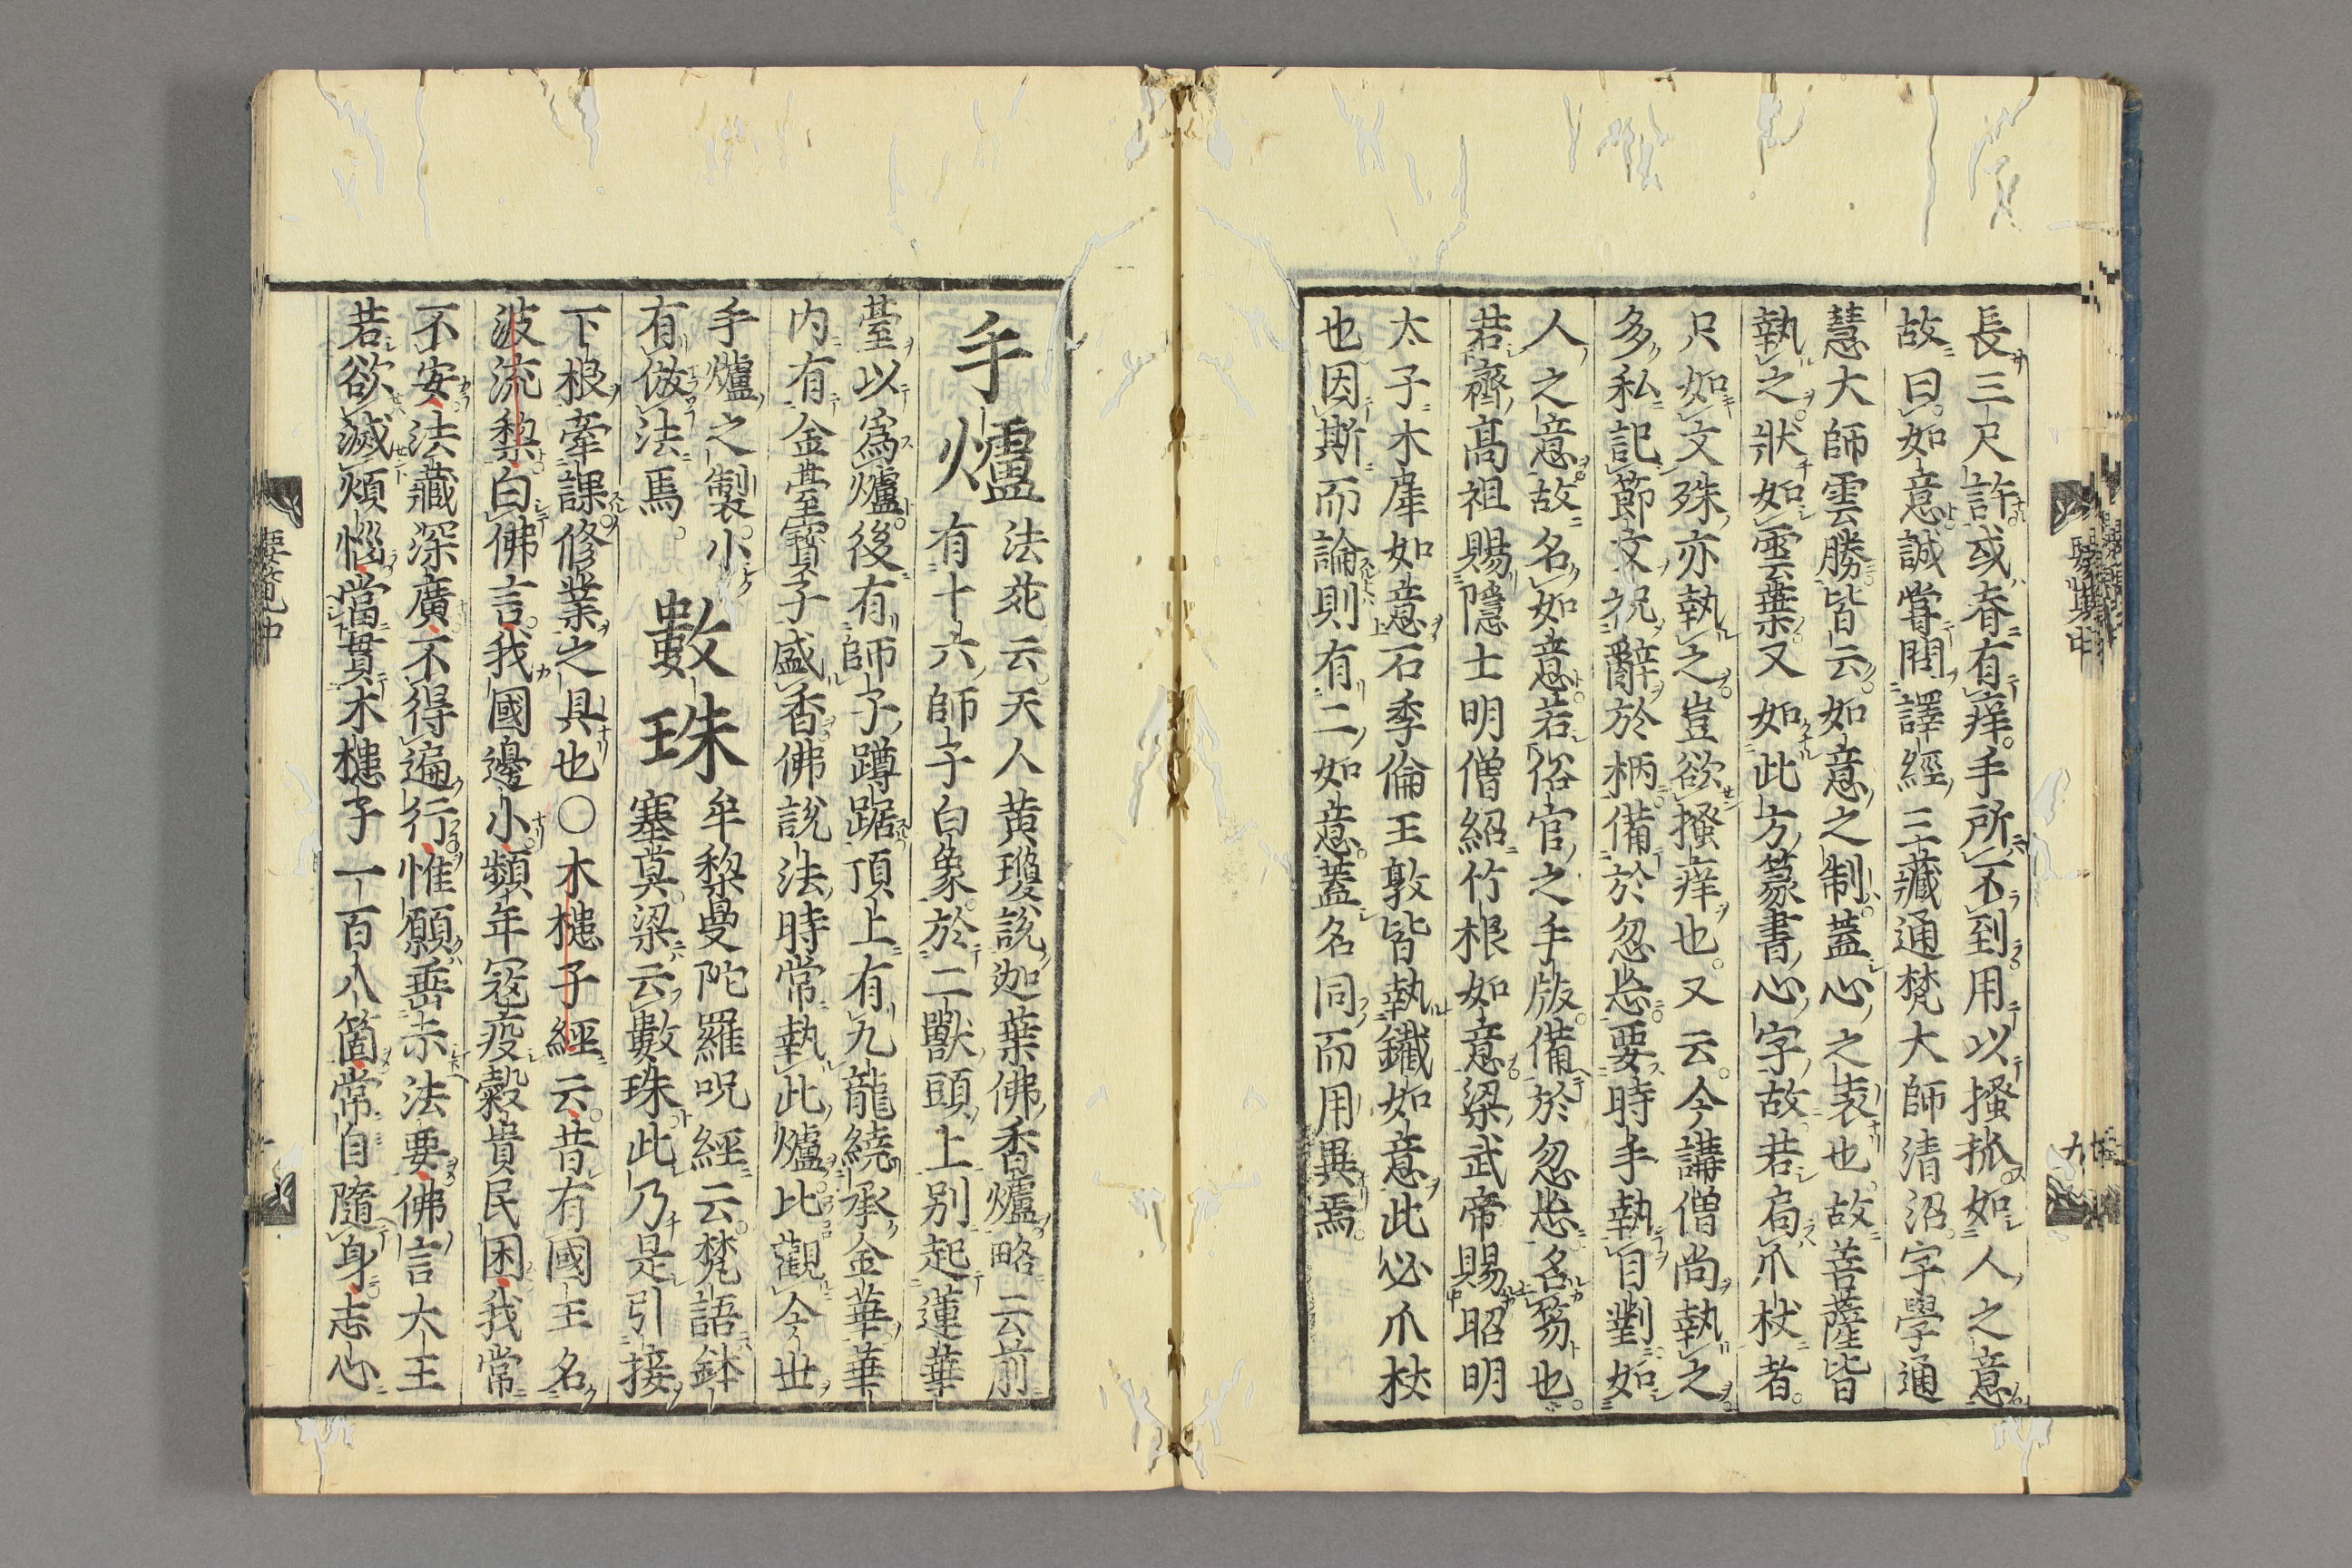 長三尺許或脊有痒手所不到用以搔抓如人之意
故曰如意誠嘗問譯經三藏通梵大師清沼字學通
慧大師雲勝皆云如意之制蓋心之表也故菩薩皆
執之狀如雲葉又如此方篆書心字故若局爪杖者
只如文殊亦執之豈欲搔痒也又云今講僧尚執之
多私記節文祝辭於柄備於忽忘要時手執目對如
人之意故名如意若俗官之手版備於忽忘名笏也
若齊高祖賜隱士明僧紹竹根如意梁武帝賜昭明
太子木犀如意石季倫王敦皆執鐵如意此必爪杖
也因斯而論則有二如意蓋名同而用異焉
手爐
法苑云天人黄瓊說迦葉佛香爐略云前
有十六師子白象於二獸頭上別起蓮華
臺以爲爐後有師子蹲踞頂上有九龍繞承金華華
内有金臺寶子盛香佛說法時常執此爐比觀今世
手爐之製小
有倣法焉
數珠
牟黎曼陀羅呪經云梵語鉢
塞莫梁云數珠此乃是引接
下根牽課修業之具也○木槵子經云昔有國王名
波流黎白佛言我國邊小頻年寇疫穀貴民困我常
不安法藏深廣不得遍行惟願垂示法要佛言大王
若欲滅煩惱當貫木槵子一百八箇常自隨身志心
要覽中
九